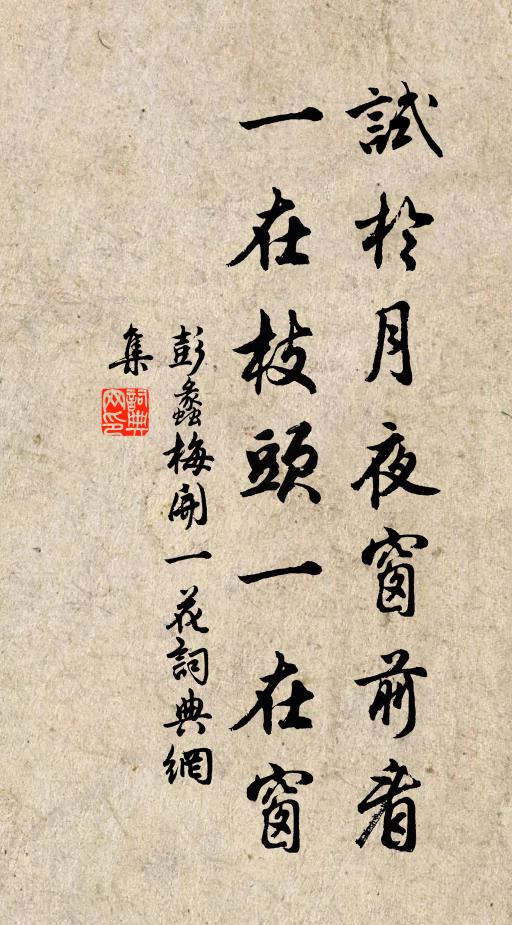 試於月夜窗前看
一在枝頭一在窗
彭蠡梅開一花詞典網
集
詞典
网印